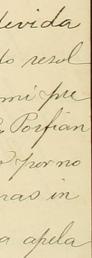 devida
do resol
mi pre
Porfian
por no
nas in
a apela